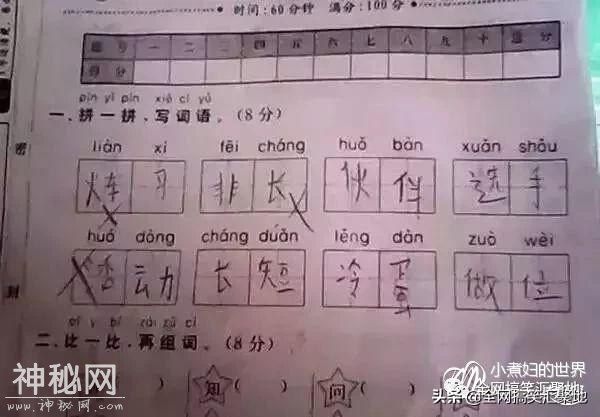 时间:60分钟 满分:100分
题号 一 二 三 四 五 六 七 八 九 十 总分
得分
pīn yī pīn xiě cí yǔ
一、拼一拼,写词语。(8分)
liàn xí fēi cháng huǒ bàn xuǎn shǒu
炼 习 非 长 伙 伴 选 手
huó dòng cháng duǎn lěng dàn zuò wèi
动 长 短 冷 蛋 做 位
密
封
bǐ yī bǐ zài zǔ cí
二、比一比,再组词。(8分)
知 ( ) 问 ( )
神秘网
www.shenmiwang.com
小煮妇的世界
全网搞笑汇聚地
头条@全网搞笑汇聚地